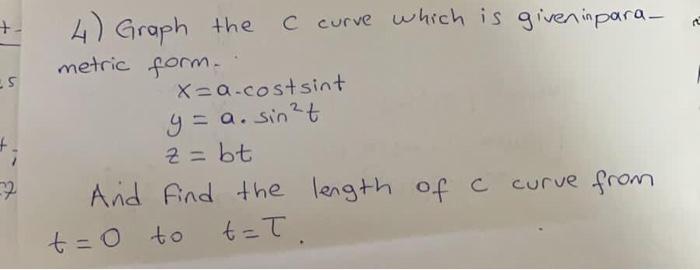 4) Graph the C curve which is given in para-
metric form.
x = a.cost sint
y = a. sin²t
z = bt
And find the length of C curve from
t = 0 to t = T.